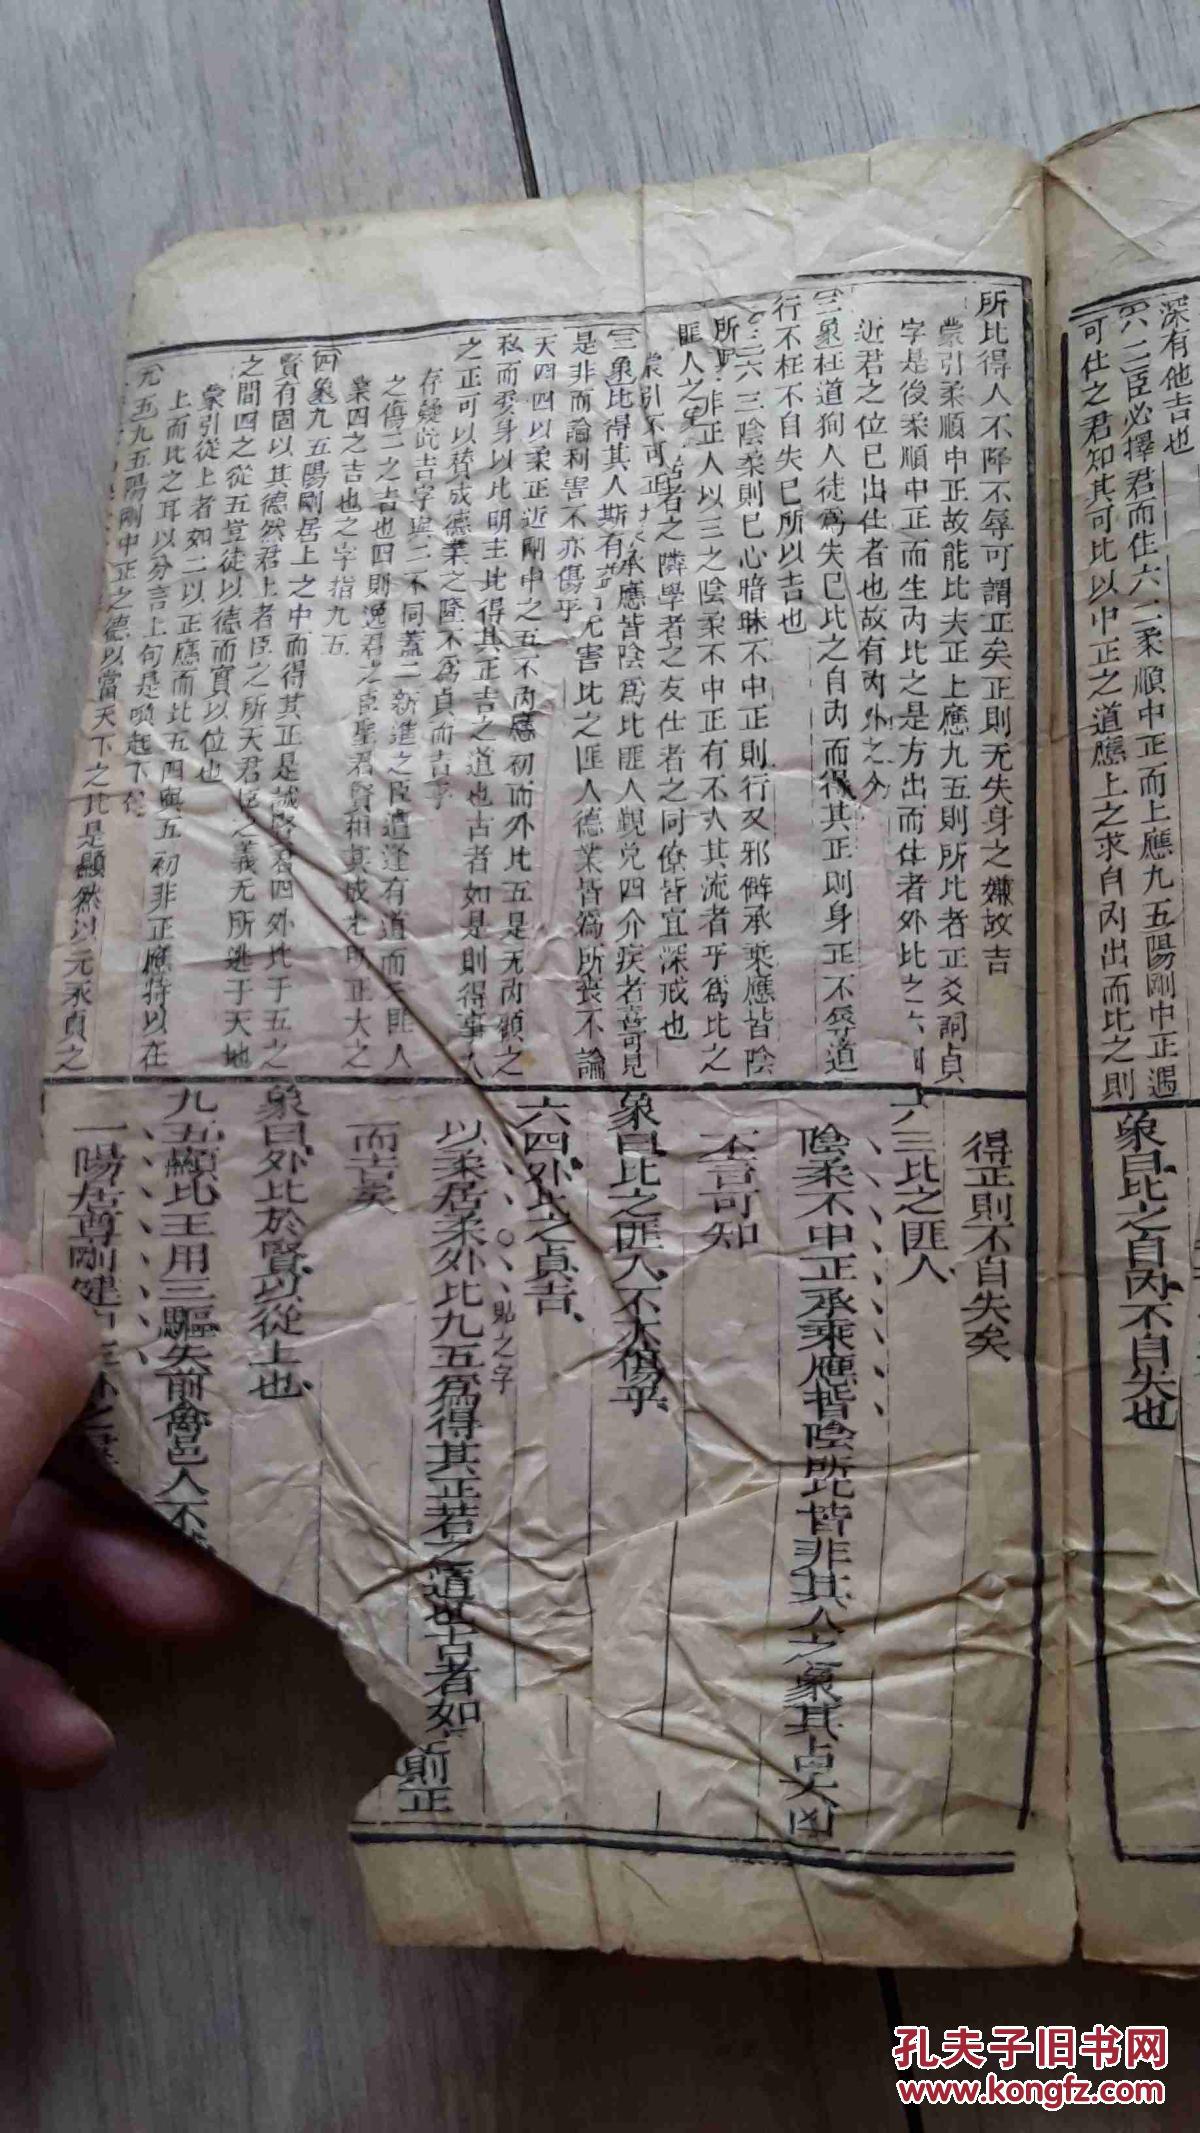 深有他吉也
六二臣必擇君而仕六二柔順中正而上應九五陽剛中正遇
可仕之君知其可比以中正之道應上之求自內出而比之則
象曰比之自內不自失也
所比得人不降不辱可謂正矣正則无失身之嫌故吉
蒙引柔順中正故能比夫正上應九五則所比者正爻詞貞
字是後柔順中正而生內比之是方出而仕者外比之六四
近君之位已出仕者也故有內外之分
二象枉道狥人徒爲失已比之自內而得其正則身正不辱道
行不枉不自失已所以吉也
三六三陰柔則已心暗昧不中正則行又邪僻承乘應皆陰
所比非正人以三之陰柔不中正有不人其流者乎爲比之
匪人之象
居者之隣學者之友仕者之同僚皆宜深戒也
蒙引不可正
承應皆陰爲比匪人觀兌四介疾者喜可見
三象比得其人斯有
无害比之匪人德業皆爲所喪不論
是非而論利害不亦傷乎
天四四以柔正近剛中之五不內應初而外比五是无內顧之
私而委身以比明主比得其正吉之道也古者如是則得事人
之正可以賛成德業之隆不爲貞而吉乎
存疑此吉字與二不同蓋二新進之臣遭逢有道而无匪人
之傷二之吉也四則逸君之臣聖君賢相其成光明正大之
業四之吉也之字指九五
四象九五陽剛居上之中而得其正是誠賢君四外比于五之
賢有固以其德然君上者臣之所天君臣之義无所逃于天地
之間四之從五豈徒以德而實以位也
蒙引從上者如二以正應而比五四與五初非正應特以在
上而比之耳以分言上句是喚起下句
元五九五陽剛中正之德以當天下之比是顯然以元永貞之
得正則不自失矣
六三比之匪人
陰柔不中正承乘應皆陰所比皆非其人之象其占大凶
不言可知
象曰比之匪人不亦傷乎
六四外比之貞吉
貼之字
以柔居柔外比九五爲得其正若之道也古者如
則正
而吉矣
象曰外比於賢以從上也
九五顯比王用三驅失前禽邑人不
一陽居尊剛健中正
孔夫子旧书网
www.kongfz.com